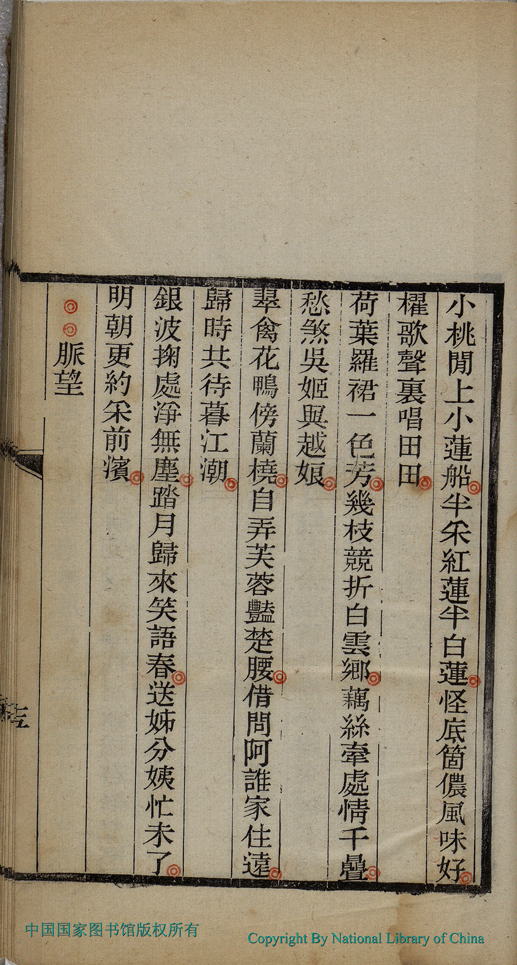 小桃閒上小蓮船半采紅蓮半白蓮怪底箇儂風味好
櫂歌聲裏唱田田
荷葉羅裙一色芳幾枝競折白雲鄉藕絲牽處情千疊
愁煞吳姬與越娘
翠禽花鴨傍蘭橈自弄芙蓉豔楚腰借問阿誰家住遠
歸時共待暮江潮
銀波掬處淨無塵踏月歸來笑語春送姊分姨忙未了
明朝更約采前濱
脈望
中国国家图书馆版权所有
Copyright By National Library of China